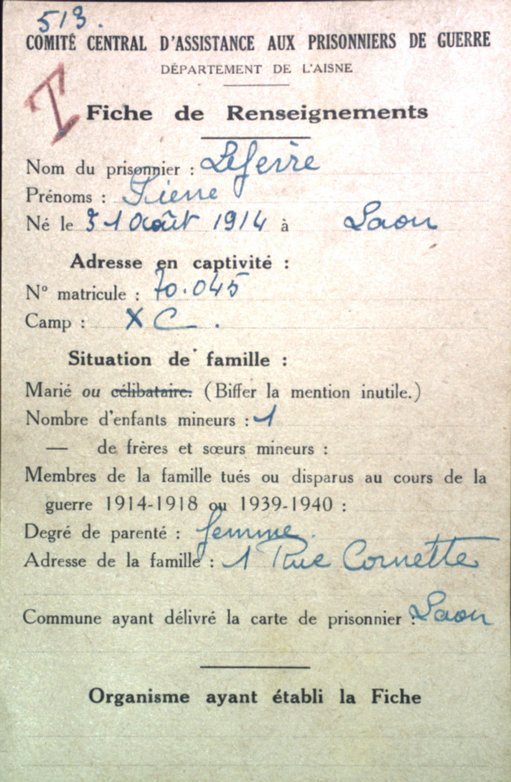 513.
COMITÉ CENTRAL D'ASSISTANCE AUX PRISONNIERS DE GUERRE
DÉPARTEMENT DE L'AISNE
T
Fiche de Renseignements
Nom du prisonnier :
Prénoms : Pierre
Né le 31 Août 1914 à Laon
Adresse en captivité :
N° matricule : 70.045
Camp : X C.
Situation de famille :
Marié ou célibataire. (Biffer la mention inutile.)
Nombre d'enfants mineurs : 1
— de frères et sœurs mineurs :
Membres de la famille tués ou disparus au cours de la
guerre 1914-1918 ou 1939-1940 :
Degré de parenté : femme.
Adresse de la famille : 1 Rue Cornette
Commune ayant délivré la carte de prisonnier : Laon
Organisme ayant établi la Fiche